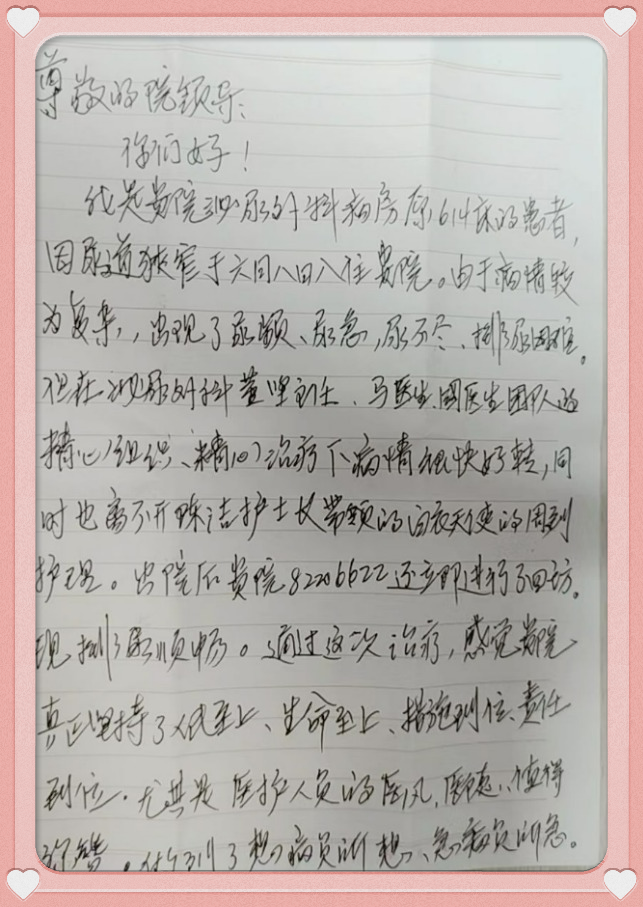 尊敬的院领导:
你们好!
我是贵院泌尿外科病房原614床的患者,
因尿道狭窄于六月八日入住贵院。由于病情较
为复杂,,出现了尿频、尿急,尿不尽、排尿困难。
但在泌尿外科董坚主任、马医生、国医生团队的
精心组织、精心治疗下病情很快好转,同
时也离不开洁护士长带领的白衣天使的周到
护理。出院后贵院82206622还立即进行了回访。
现排尿顺畅。通过这次治疗,感觉贵院
真正坚持了人民至上、生命至上、措施到位、责任
到位。尤其是医护人员的医风,医德,值得
称赞。做到了想病员所想、急病员所急。